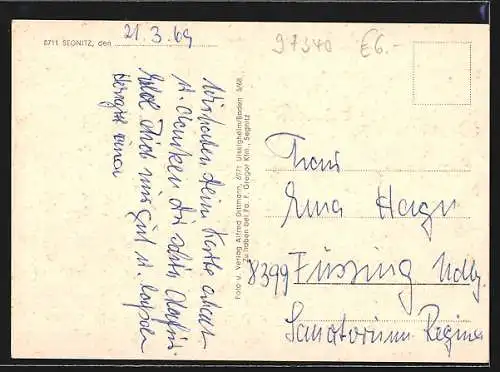 8711 SEGNITZ, den 21.3.69
97340 £6.-
Wir haben deine Karte erhalt.
u. danken dir dafür
Erhol Dich nur gut u. lass
Foto u. Verlag Alfred Ostmann, 6971 Uissigheim/Baden 5/68
Zu haben bei Fa. F. Gregor Klm., Segnitz
Frau
Erna Hagn
8399 Füssing Ndby.
Sanatorium Regina